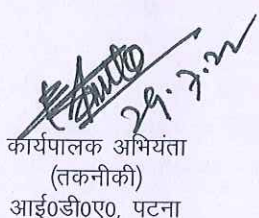 29.7.22
कार्यपालक अभियंता
(तकनीकी)
आई0डी0ए0, पटना